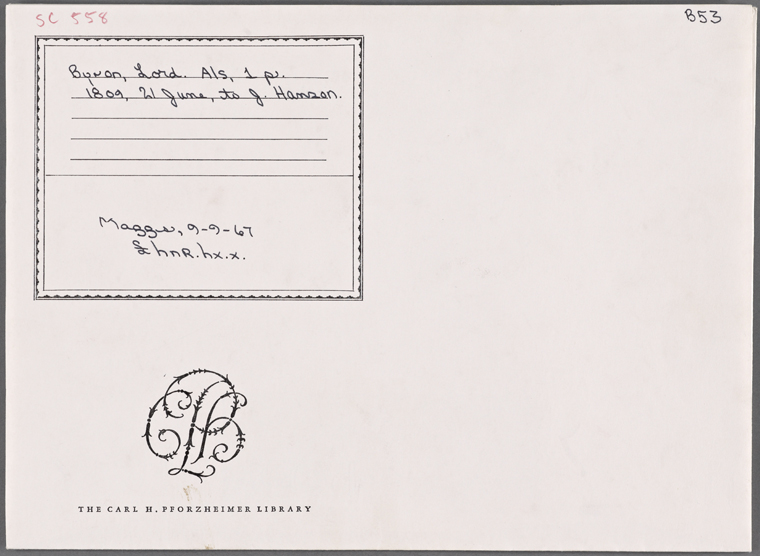 SC 558
B53
Byron, Lord. Als, 1 p.
1809, 21 June, to J. Hanson.
Maggs, 9-9-67
£ hnR.hx.x.
THE CARL H. PFORZHEIMER LIBRARY